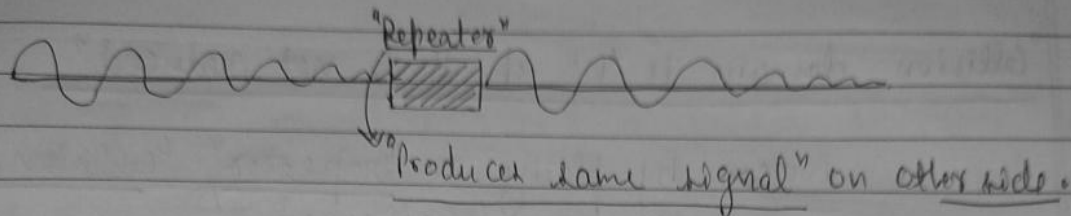 "Repeater"
"Produces same signal" on other side.